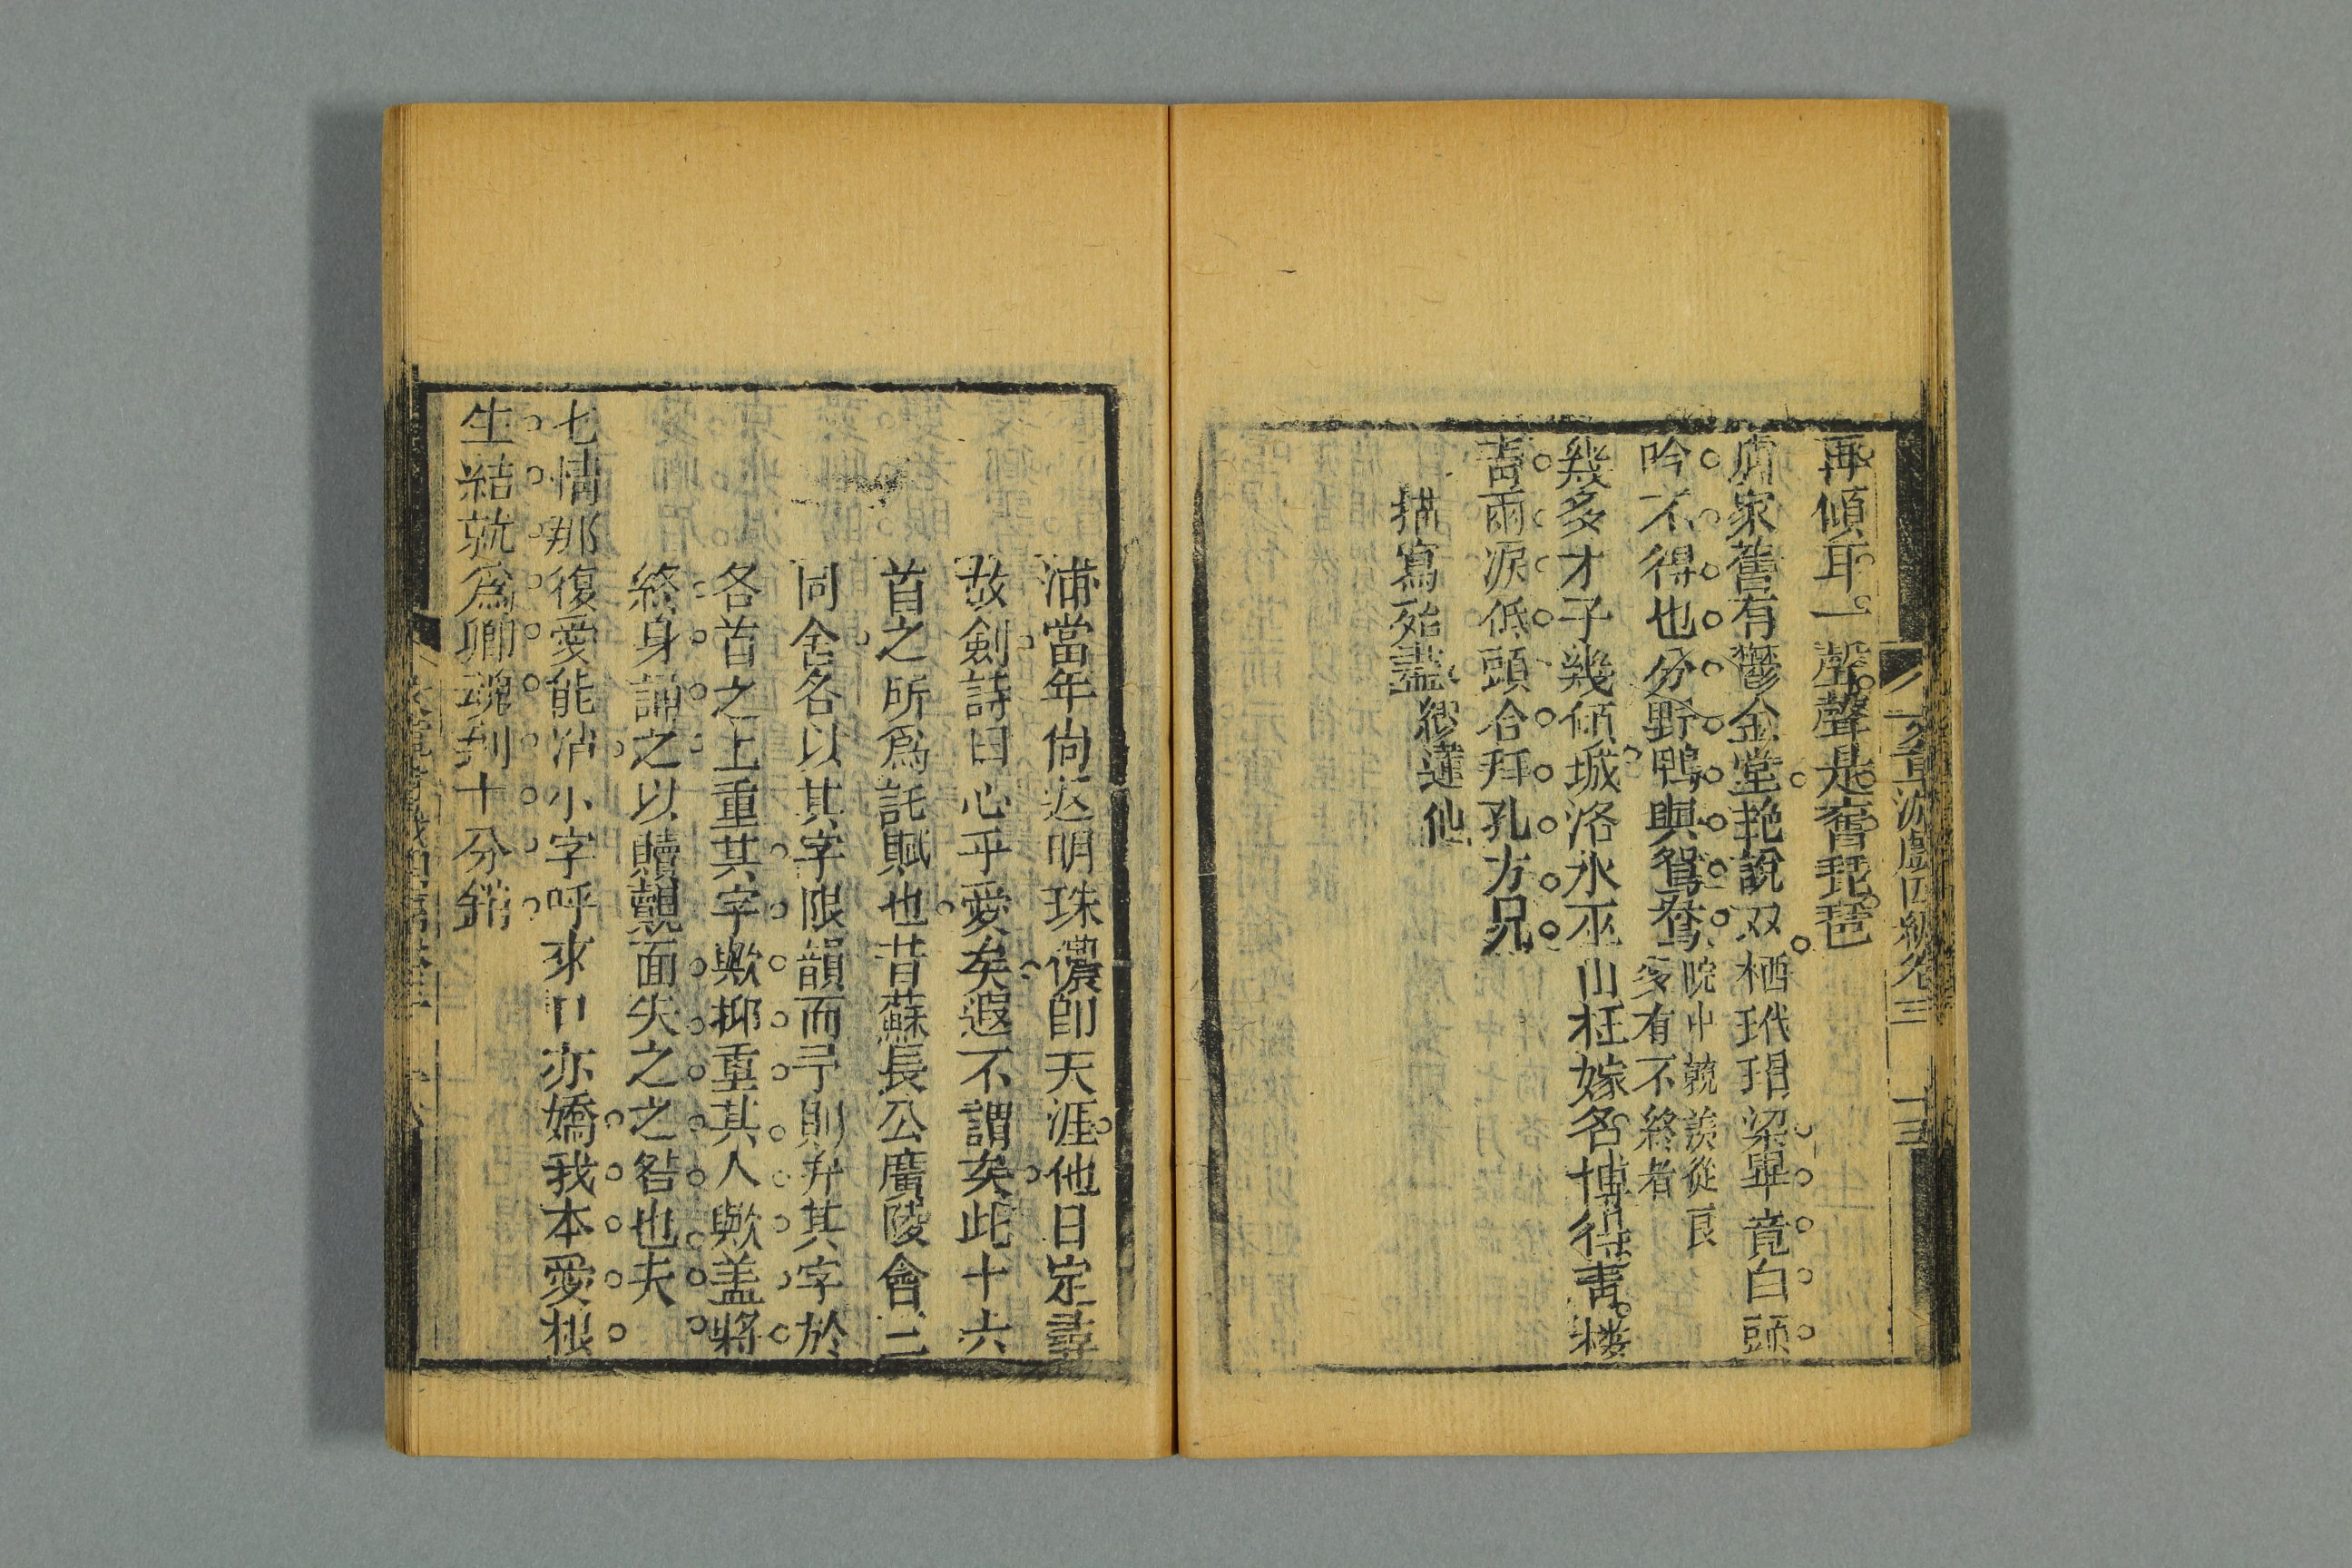 再傾耳一聲聲是舊琵琶
盧家舊有鬱金堂艶說双栖玳瑁梁畢竟白頭
吟不得也分野鴨與鴛鴦院中競羨從良
多有不終者
幾多才子幾傾城洛水巫山枉嫁名博得靑楼
靑雨淚低頭合拜孔方兄
描寫殆盡
浦當年尙返明珠儂卽天涯他日定尋
故劍詩曰心乎愛矣遐不謂矣此十六
首之所爲託賦也昔蘇長公廣陵會三
同舍各以其字限韻而予則弁其字於
各首之上重其字歟抑重其人歟盖將
終身誦之以贖覿面失之之咎也夫
七情那復愛能消小字呼來口亦嬌我本愛根
生結就爲卿魂到十分銷